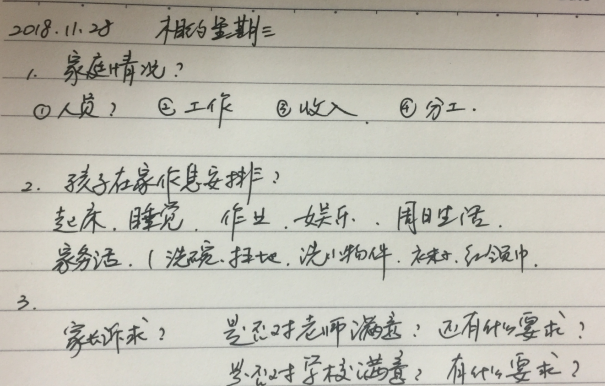 2018.11.28 相约星期三
1. 家庭情况?
①人员? ②工作 ③收入. ④分工.
2. 孩子在家作息安排?
起床.睡觉.作业.娱乐.周日生活.
家务活.(洗碗.扫地.洗小物件.袜子.红领巾.
3.
家长诉求? 是否对老师满意?还有什么要求?
是否对学校满意?有什么要求?